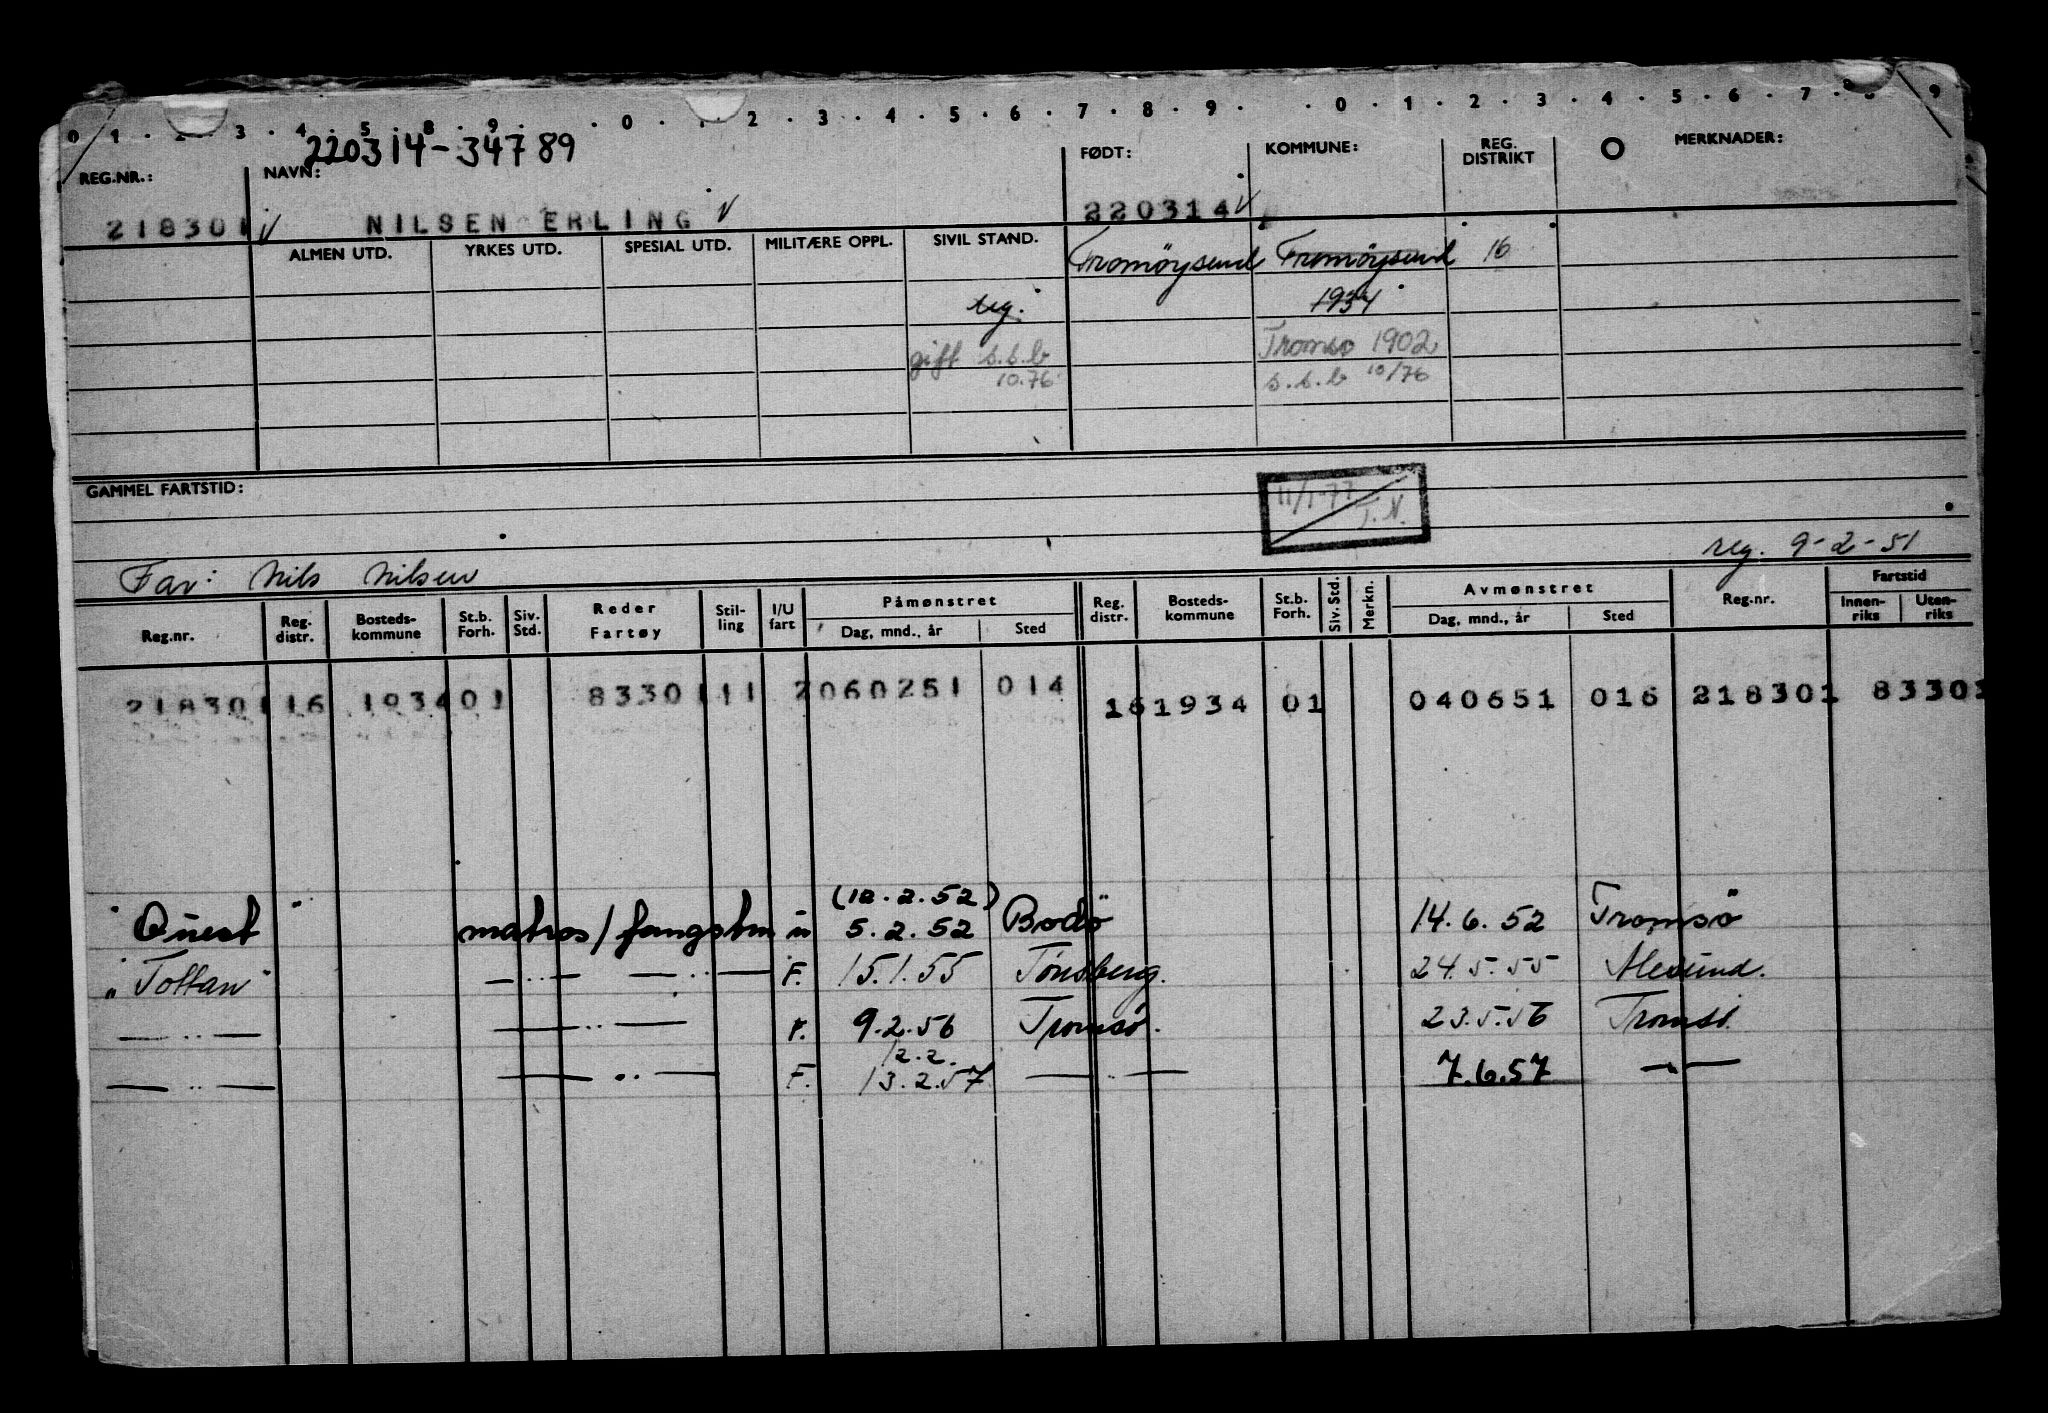 0 1 · 2 · 3 · 4 · 5 · 8 · 9 · · 0 · · 2 · 3 · 4 · 5 · 6 · 7 · 8 · 9 · · 0 · 1 · 2 · 3 · 4 · 5 · 6 · 7 · 8 · 9
220314-34789
REG.NR.: NAVN: FØDT: KOMMUNE: REG. DISTRIKT MERKNADER:
218301 NILSEN ERLING 220314
ALMEN UTD. YRKES UTD. SPESIAL UTD. MILITÆRE OPPL. SIVIL STAND. Tromöysund Tromöysund 16
ug. 1934
gift s.s.b Tromsø 1902
10.76 s.s.b 10/76
GAMMEL FARTSTID: 11/1-77
T.N.
reg. 9-2-51
Far: Nils Nilsen
Reg.nr. Reg. distr. Bosteds-kommune St.b. Forh. Siv. Std. Reder Fartøy Stil-ling I/U fart Påmønstret Dag, mnd., år Sted Reg. distr. Bosteds-kommune St.b. Forh. Siv. Std. Merkn. Avmønstret Dag, mnd., år Sted Reg.nr. Fartstid Innen-riks Uten-riks
218301 16 1934 01 83301 11 2 060251 014 16 1934 01 040651 016 218301 83301
(12.2.52)
"Quest" matros/fangstm u 5.2.52 Bodö 14.6.52 Tromsö
"Tottan" — " — — " — F. 15.1.55 Tønsberg. 24.5.55 Ålesund.
— " — — " — F. 9.2.56 Tromsø. 23.5.56 Tromsø.
12.2.
— " — — " — F. 13.2.57 — " — 7.6.57 — " —